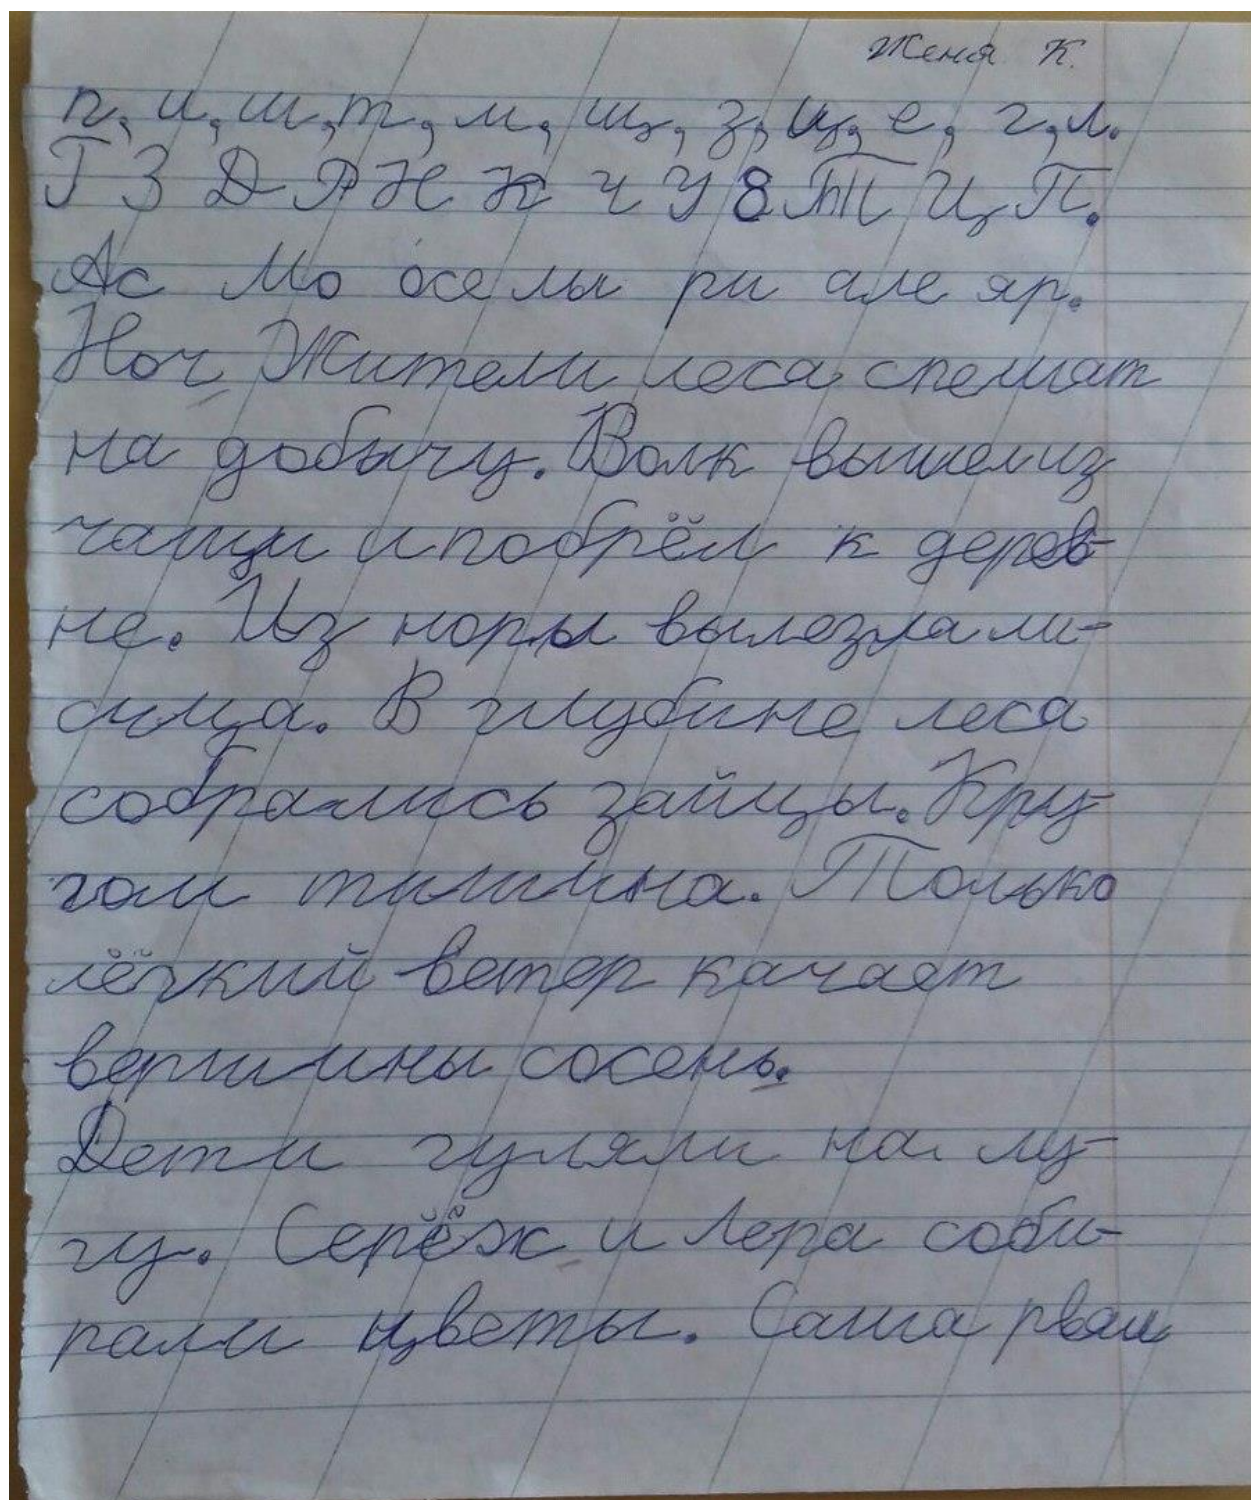 Женя К.
п, и, ш, т, м, щ, з, ц, е, г, л.
Г З Д Я Н К Ч У 8 Т Ц П.
Ас Мо осе лы ри але яр.
Ноч Жители леса спешат
на добычу. Волк вышел из
чащи и побрёл к дерев-
не. Из норы вылезла ли-
сица. В глубине леса
собрались зайцы. Кру-
гом тишина. Только
лёгкий ветер качает
вершины сосень.
Дети гуляли на лу-
гу. Серёж и Лера соби-
рали цветы. Саша рвал